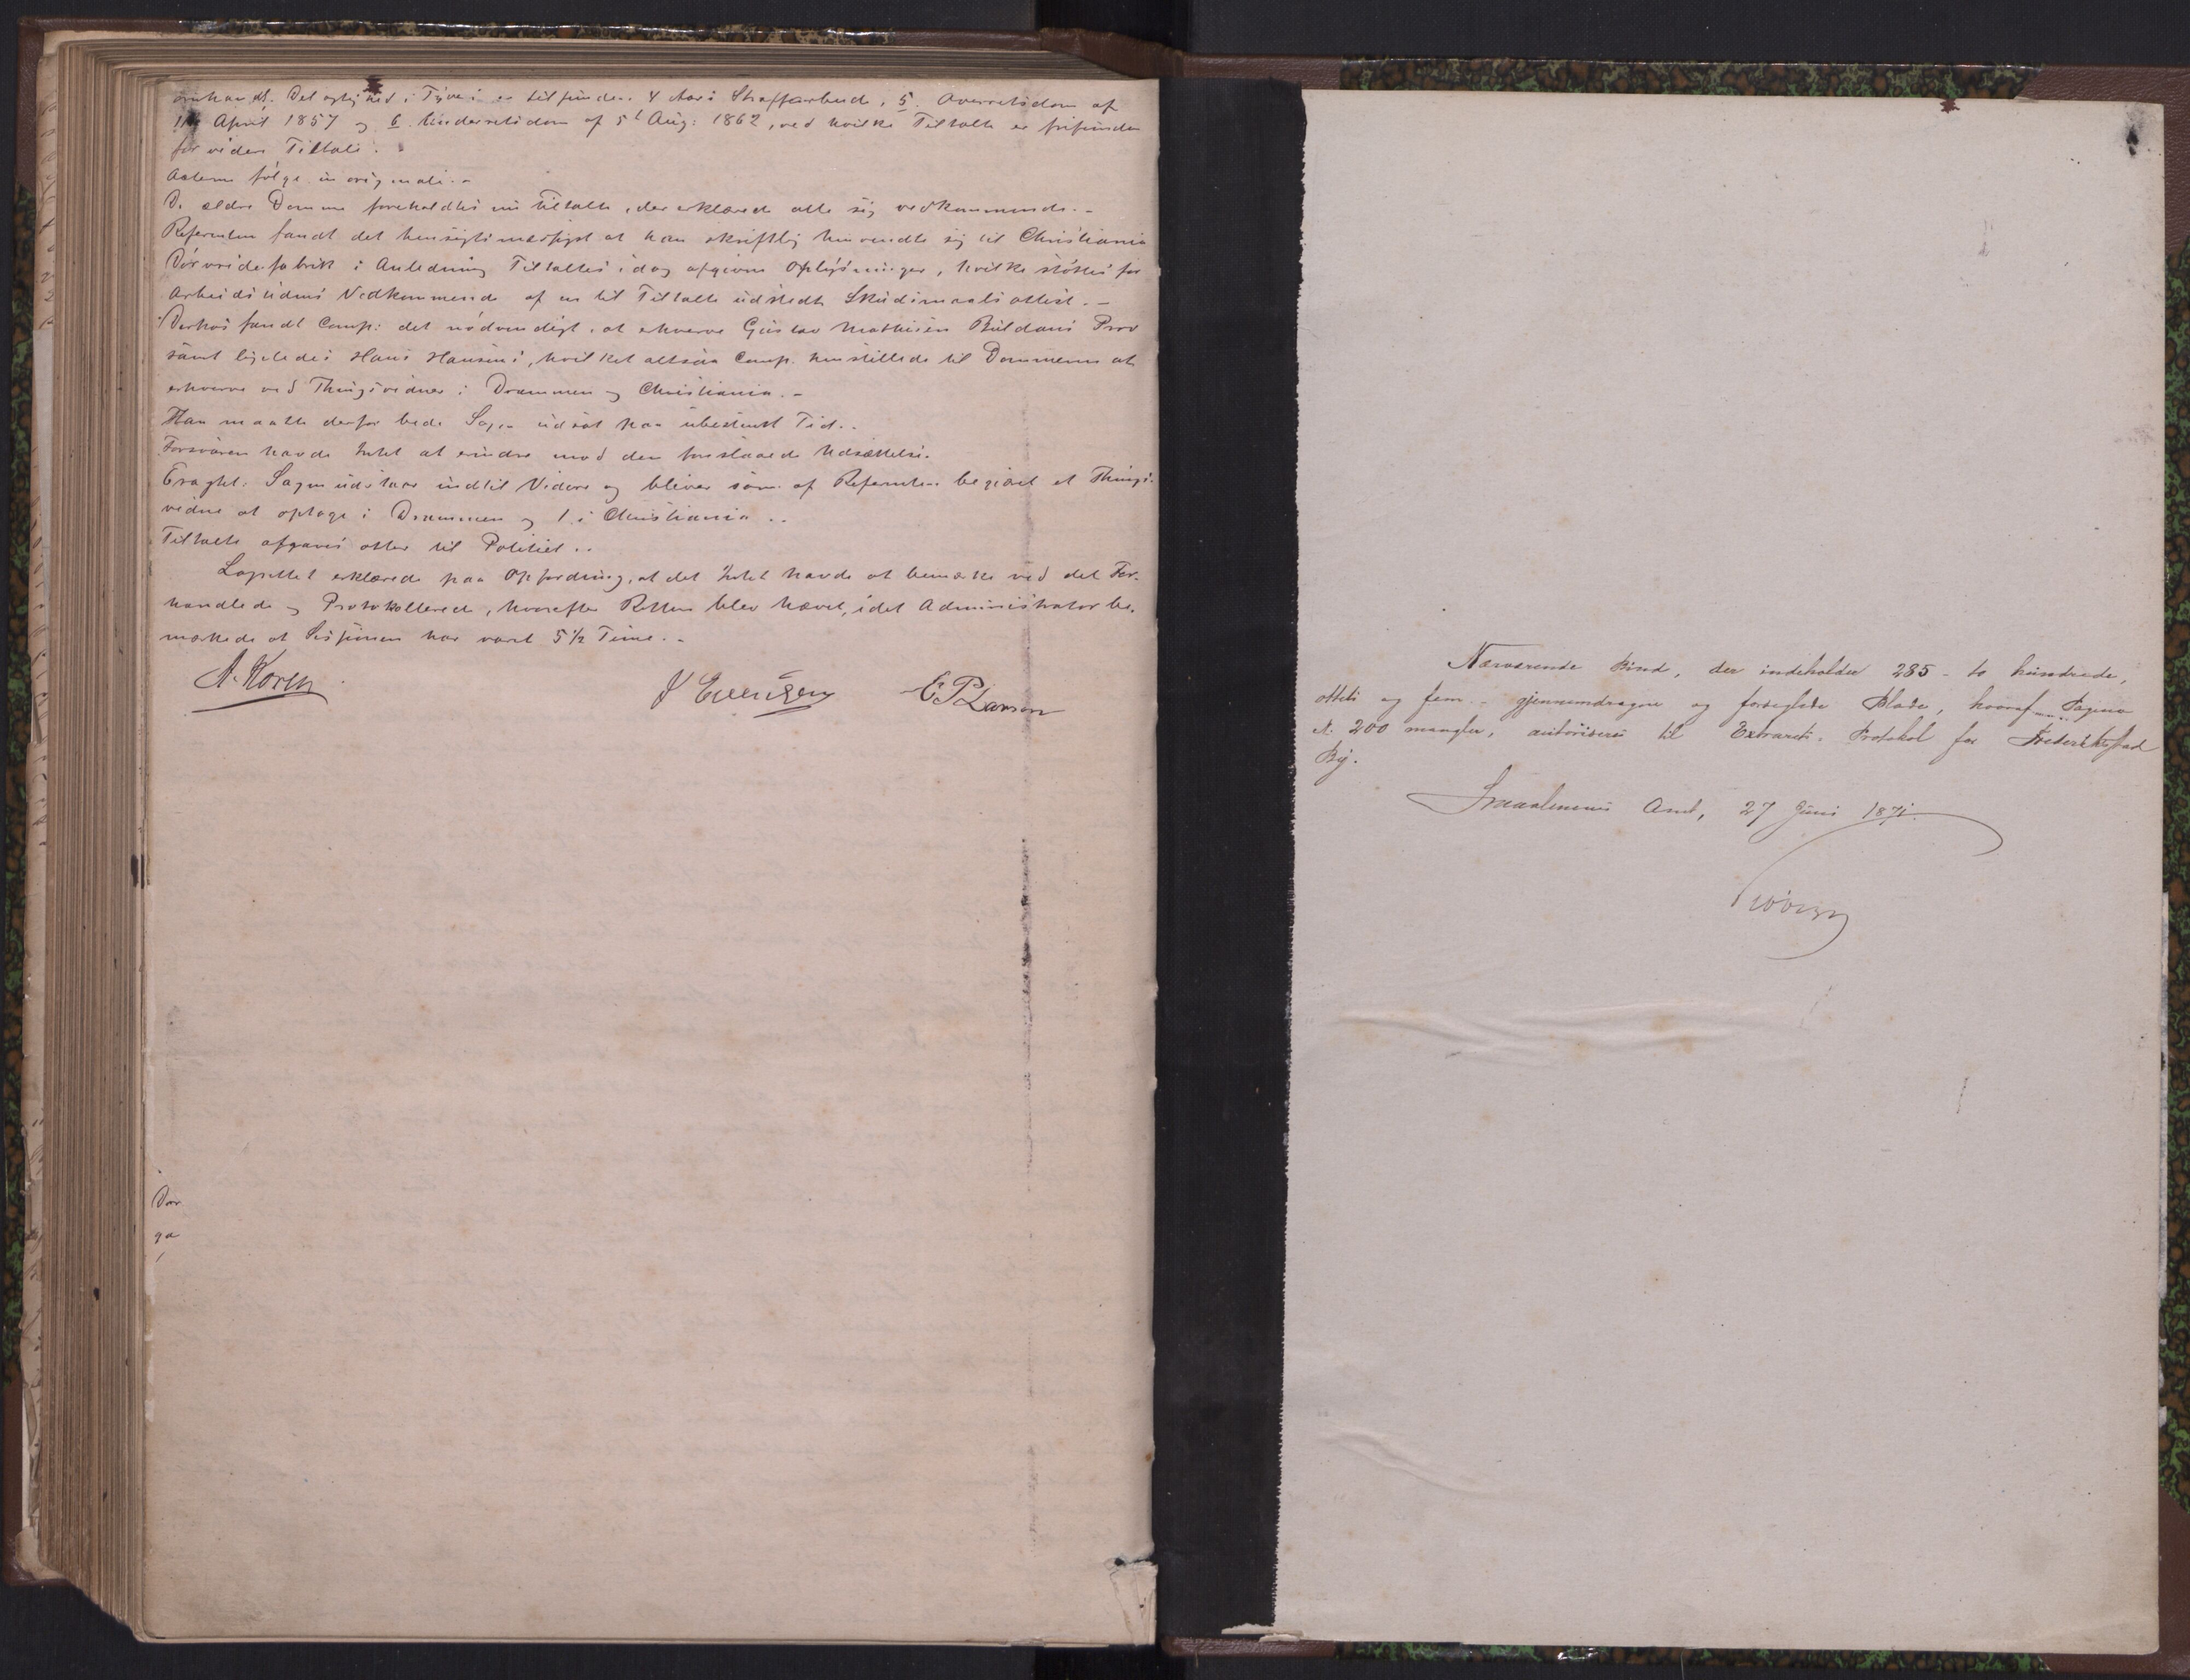 Delagtighed i Tyveri er tilfunden 4 Aars Strafarbeide, 5. Overretsdom af
April 1857 og 6 Underretsdom af 5t Aug: 1862, ved hvilke Tiltalte er frifunden
for videre Tiltale.
Acterne følge in originali.-
De ældre Domme foreholdtes nu Tiltalte, der erklærede alle sig vedkommende.-
Referenten fandt det hensigtsmæssigst at han skriftlig henvendte sig til Christiania
Dørvriderfabrik i Anledning Tiltaltes idag afgivne Oplysninger, hvilke støttes for
Arbeidstidens Vedkommende af en til Tiltalte udstedt Skudsmaalsattest.-
Derhos fandt Comp: det nødvendigt, at erhverve Gustav Mathisen Buldans Prov
samt ligeledes Hans Hansens, hvilket altsaa Comp. henstillede til Dommeren at
erhverve ved Thingsvidner i Drammen og Christiania.-
Han maatte derfor bede Sagen udsat paa ubestemt Tid..
Forsvaren havde Intet at erindre mod den foreslaaede Udsættelse.
Eragtet. Sagen udstaar indtil Videre og bliver som af Referenten begjært et Things-
vidne at optage i Drammen og 1 i Christiania..
Tiltalte afgaves atter til Politiet..
Lagrettet erklærede paa Opfordring, at det Intet havde at bemærke ved det For-
handlede og Protokollerede, hvorefter Retten blev hævet, idet Administrator be-
mærkede at Sessionen har varet 5½ Time.-
A. Koren
J Evensen
E P Larsen
Dør
ga
Nærværende Bind, der indeholder 285 - to hundrede,
otteti og fem - gjennemdragne og forseglede Blade, hvoraf Pagina
N. 200 mangler, autoriseres til Extrarets-Protokol for Frederikstad
By.
Smaalenenes Amt, 27 Juni 1871.